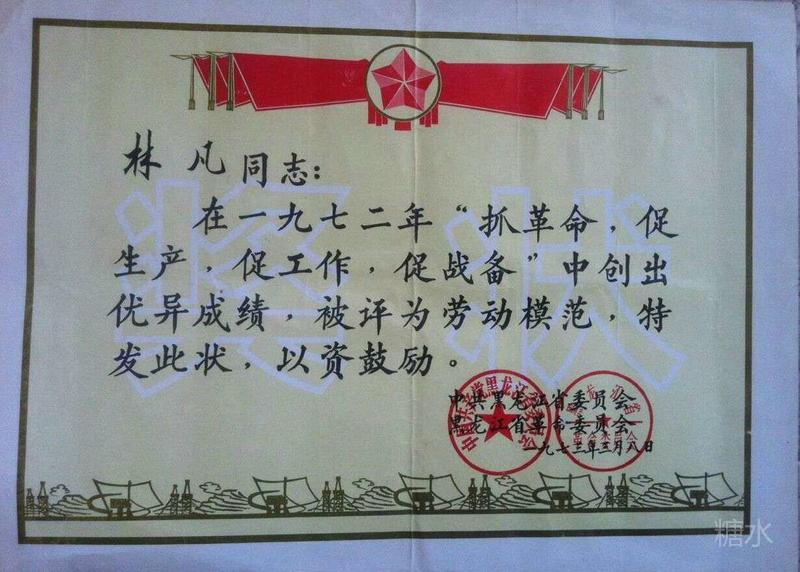 奖状
林凡同志:
在一九七二年“抓革命,促
生产,促工作,促战备”中创出
优异成绩,被评为劳动模范,特
发此状,以资鼓励。
中共黑龙江省委员会
黑龙江省革命委员会
一九七三年三月八日
糖水